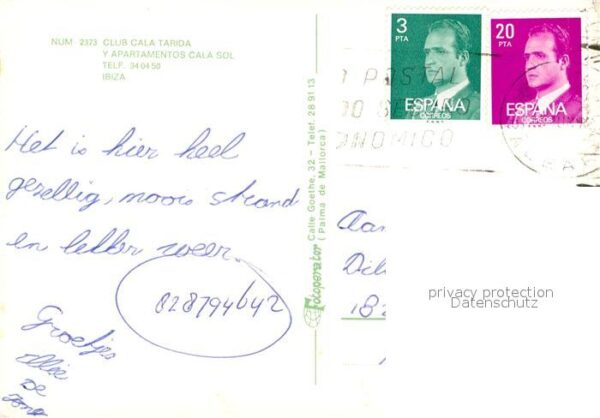 NUM 2373 CLUB CALA TARIDA
Y APARTAMENTOS CALA SOL
TELF. 34 04 58
IBIZA
Het is hier heel
gezellig, moois strand
en lekker weer.
028794642
Groetjes
De
Fotoperator
Calle Goethe, 32 - Telef. 28 91 13
(Palma de Mallorca)
3
PTA
ESPAÑA
CORREOS
20
PTA
ESPAÑA
CORREOS
POSTAL
ONOMICO
Aan
182
privacy protection
Datenschutz